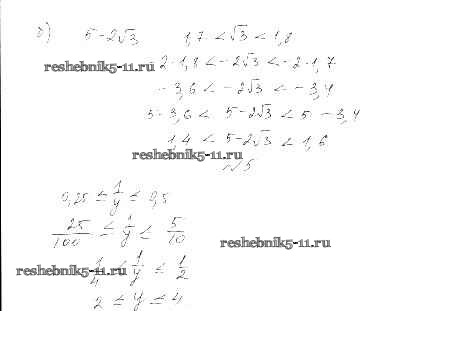 б) 5-2√3 1,7 < √3 < 1,8
reshebnik5-11.ru 2·1,8 < -2√3 < -2·1,7
-3,6 < -2√3 < -3,4
5-3,6 < 5-2√3 < 5-3,4
1,4 < 5-2√3 < 1,6
reshebnik5-11.ru
№5
0,25 ≤ 1/y ≤ 0,5
25/100 ≤ 1/y ≤ 5/10
reshebnik5-11.ru
1/4 ≤ 1/y ≤ 1/2
reshebnik5-11.ru
2 ≤ y ≤ 4